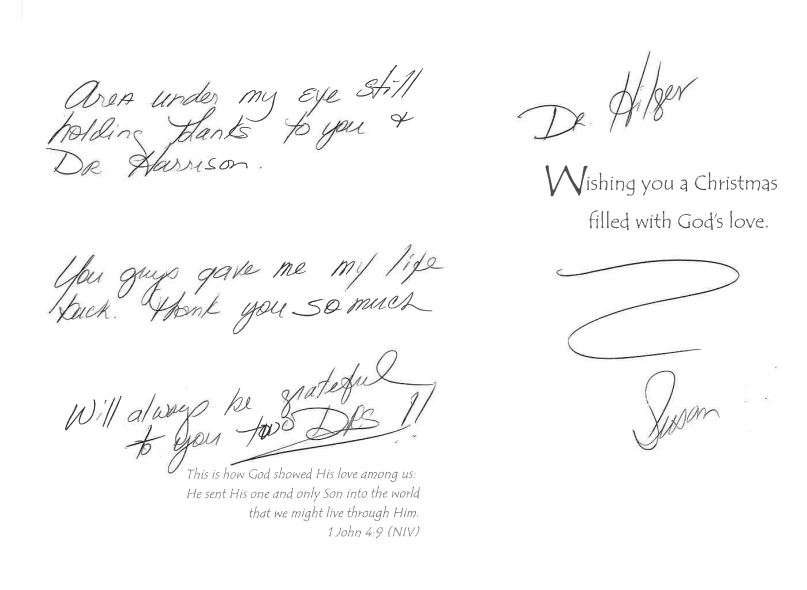 Area under my eye still
holding thanks to you &
DR Harrison.
You guys gave me my life
back. Thank you so much
Will always be grateful
to you two DRS !!
This is how God showed His love among us:
He sent His one and only Son into the world
that we might live through Him.
1 John 4:9 (NIV)
DR. Hilger
Wishing you a Christmas
filled with God's love.
Susan